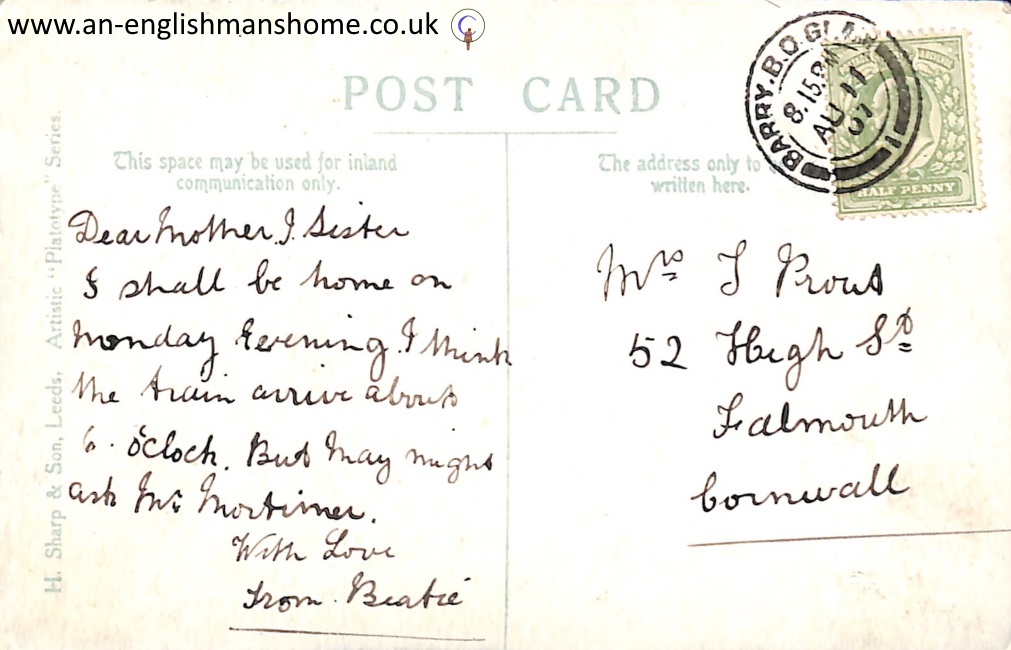 www.an-englishmanshome.co.uk
POST CARD
This space may be used for inland
communication only.
The address only to
written here.
BARRY.B.O.GLAM
8.15PM
AU 11
07
1
HALF PENNY
H. Sharp & Son, Leeds, Artistic "Platotype" Series.
Dear Mother & Sister
I shall be home on
Monday Evening. I think
the train arrive about
6. o'clock. But May might
ask Mr Mortimer.
With Love
From Beatie
Mrs T Prout
52 High St
Falmouth
Cornwall